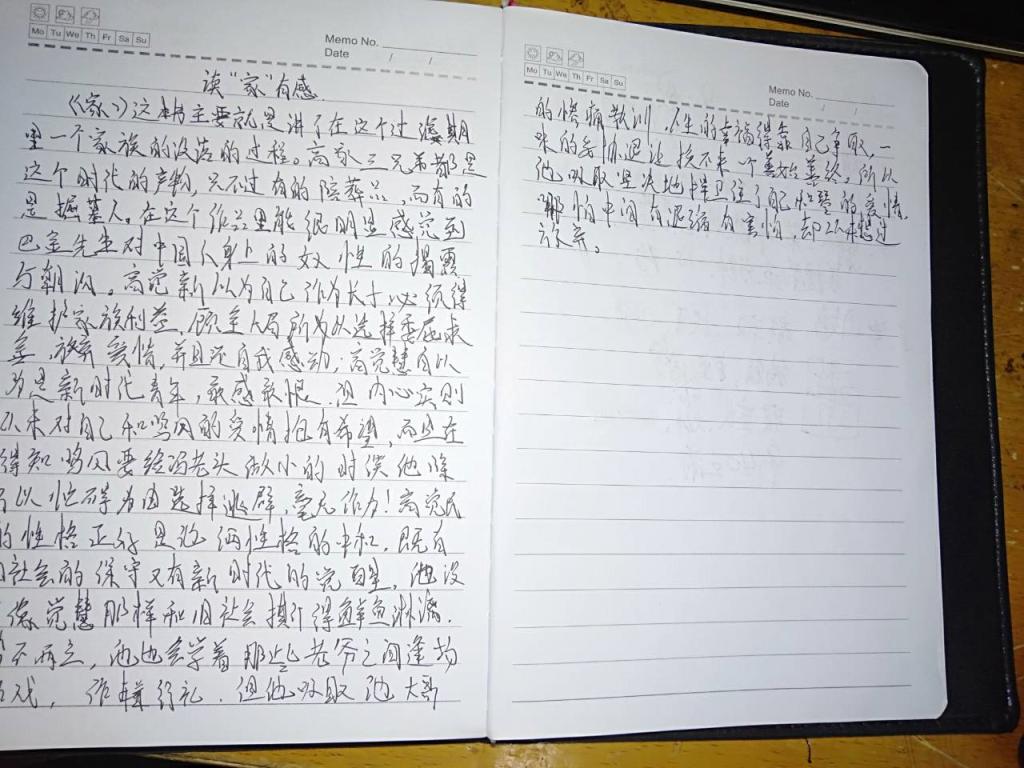 Mo Tu We Th Fr Sa Su
Memo No.
Date / /
读“家”有感
《家》这本书主要就是讲了在这个过渡期
里一个家族的没落的过程。高家三兄弟都是
这个时代的产物，只不过有的陪葬品，而有的
是掘墓人。在这个作品里能很明显感觉到
巴金先生对中国人身上的奴性的揭露
与朝讽。高觉新以为自己作为长子必须得
维护家族利益，顾全大局所以选择委屈求
全，放弃爱情，并且还自我感动；高觉慧自以
为是新时代青年，敢感敢恨，但内心实则
从未对自己和鸣凤的爱情抱有希望，而且在
得知鸣凤要给冯老头做小的时候他
以性 为由选择逃避，毫无作为！高觉民
的性格正好是这俩性格的中和，既有
旧社会的保守又有新时代的觉醒，他没
像觉慧那样和旧社会搞得鲜血淋漓，
不两立，他也会学着那些老爷之间逢场
作戏，作揖行礼，但他吸取他大哥
Mo Tu We Th Fr Sa Su
Memo No.
Date / /
的惨痛教训，人生的幸福得靠自己争取，一
味的妥协退让换不来一个善始善终。所以
他吸取坚决地捍卫住了自己和琴的爱情
哪怕中间有退缩有害怕，却从未想过
放弃。